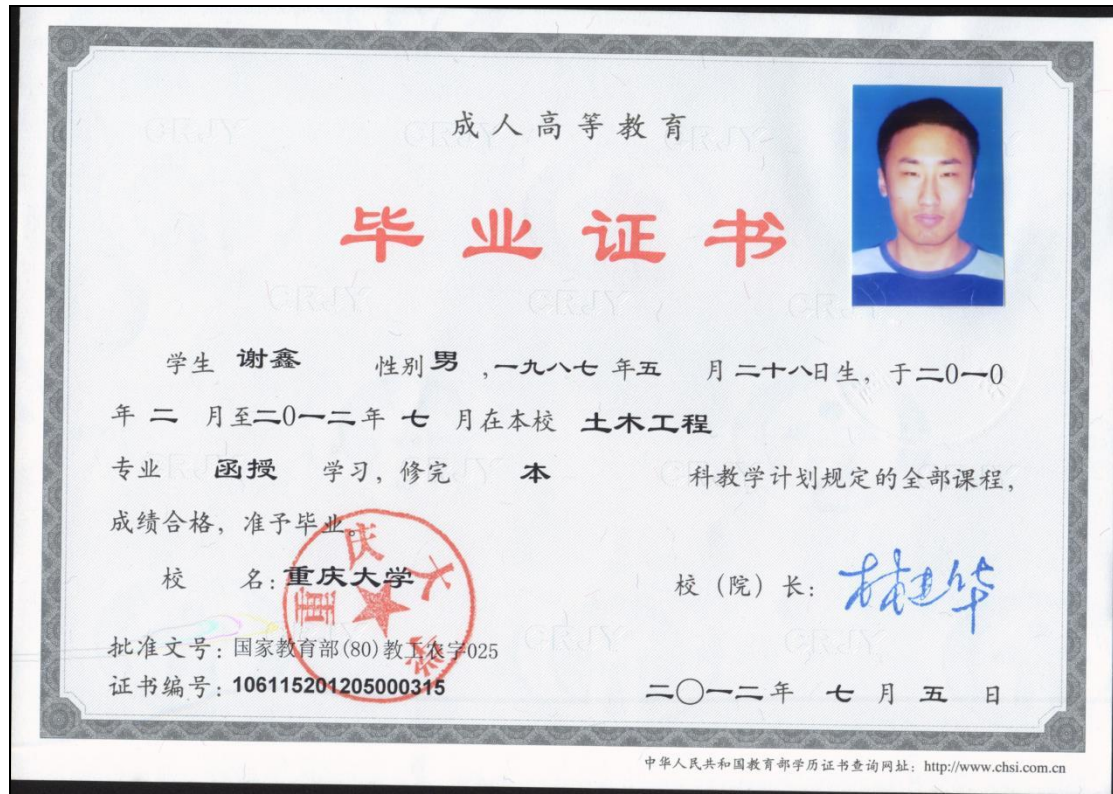 成人高等教育
毕业证书
学生 谢鑫 性别 男 ,一九八七 年 五 月 二十八日生, 于二0一0
年 二 月至二0一二年 七 月在本校 土木工程
专业 函授 学习, 修完 本 科教学计划规定的全部课程,
成绩合格, 准予毕业。
校 名: 重庆大学
校（院）长: 林建华
重庆大学
批准文号: 国家教育部(80)教工农字025
证书编号: 106115201205000315
二〇一二年 七 月 五 日
中华人民共和国教育部学历证书查询网址: http://www.chsi.com.cn